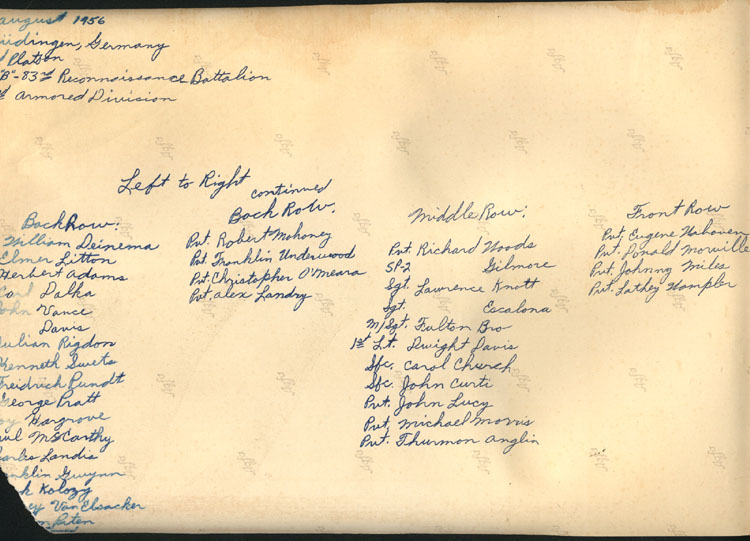 august 1956
üdingen, Germany
Platoon
"B"-83rd Reconnaissance Battalion
Armored Division
Left to Right
continued
Back Row:
William Deinema
Elmer Litton
Herbert Adams
Carl Dalka
John Vance
Davis
ulian Rigdon
Kenneth Swets
Freidrich Pundt
George Pratt
oy Hargrove
aul McCarthy
harles Landis
nklin Gwynn
k Kolozy
cy VanElsacker
Back Row:
Pvt. Robert Mahoney
Pvt Franklin Underwood
Pvt. Christopher O'Meara
Pvt. Alex Landry
Middle Row:
Pvt Richard Woods
SP-2 Gilmore
Sgt. Lawrence Knott
Sgt. Escalona
M/Sgt. Fulton Bro
1st Lt. Dwight Davis
Sfc. Carol Church
Sfc. John Curti
Pvt. John Lucy
Pvt. Michael Morris
Pvt. Thurmon Anglin
Front Row
Pvt. Eugene
Pvt. Donald Morville
Pvt. Johnny Miles
Pvt. Lathey Hampler